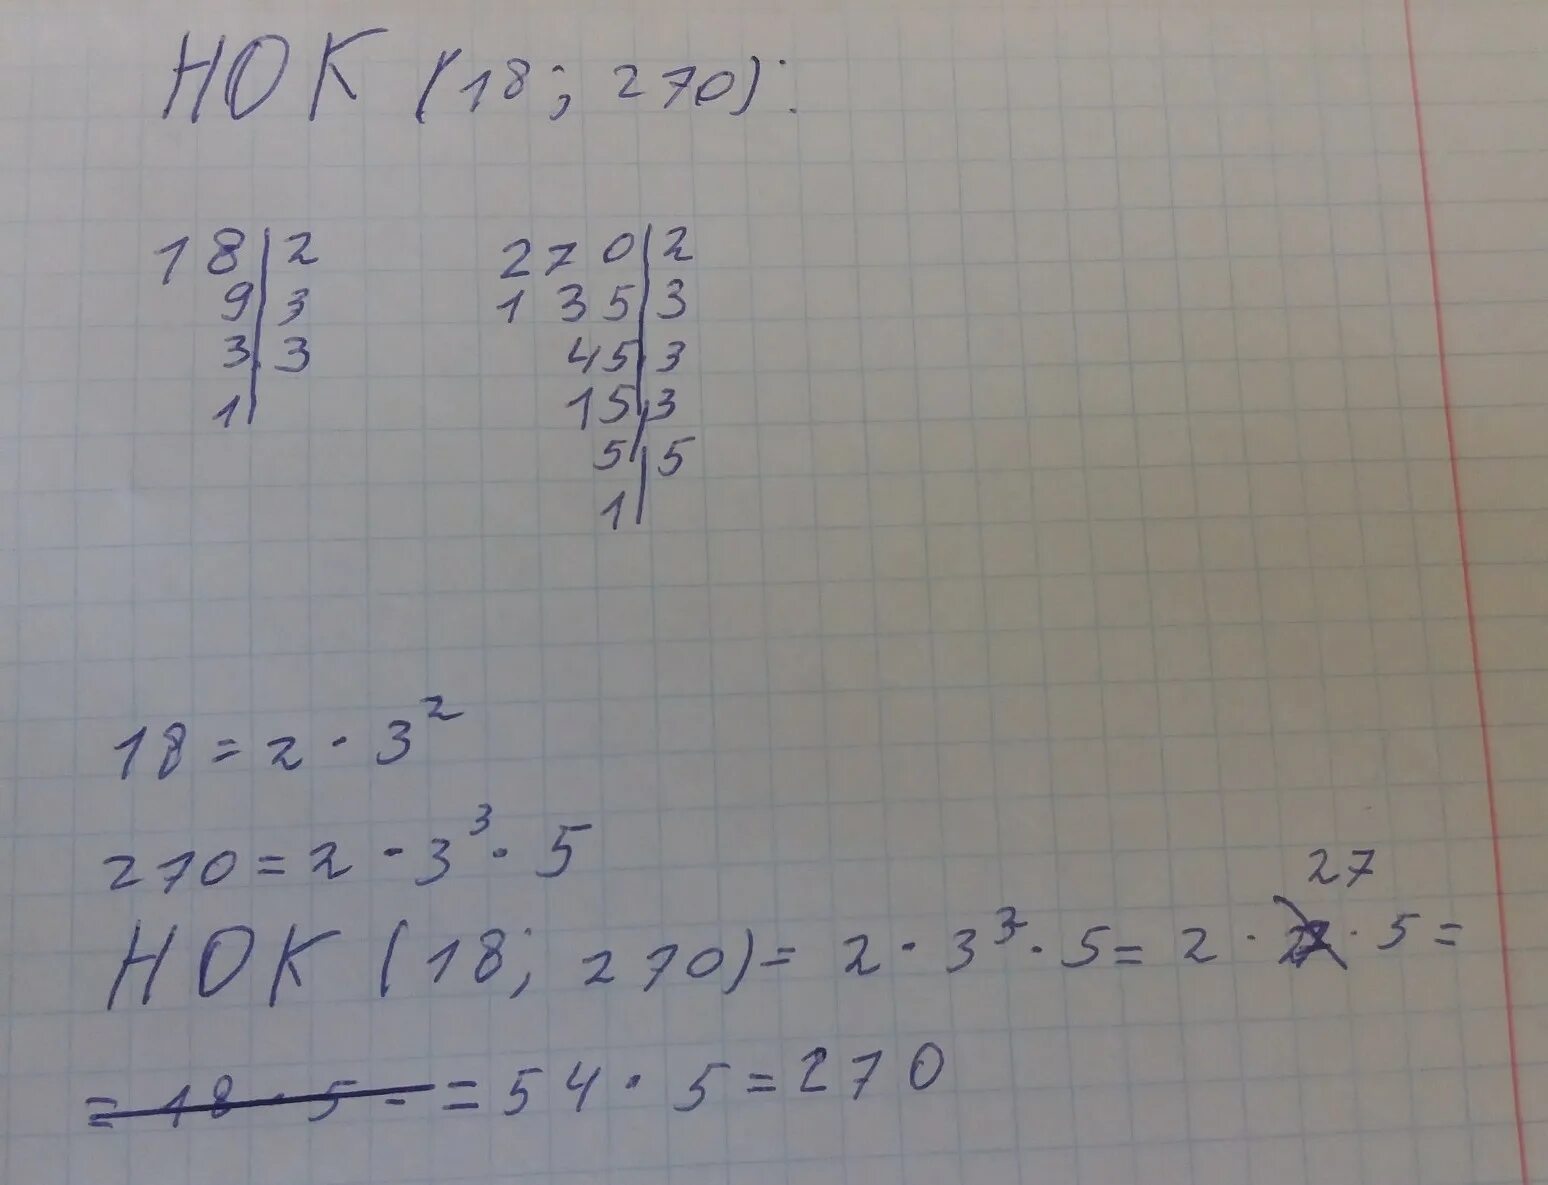 НОК (18; 270):
18 | 2
9 | 3
3 | 3
1 |
270 | 2
135 | 3
45 | 3
15 | 3
5 | 5
1 |
18 = 2 · 3²
270 = 2 · 3³ · 5
27
НОК (18; 270) = 2 · 3³ · 5 = 2 · · 5 =
= 18 · 5 = = 54 · 5 = 270